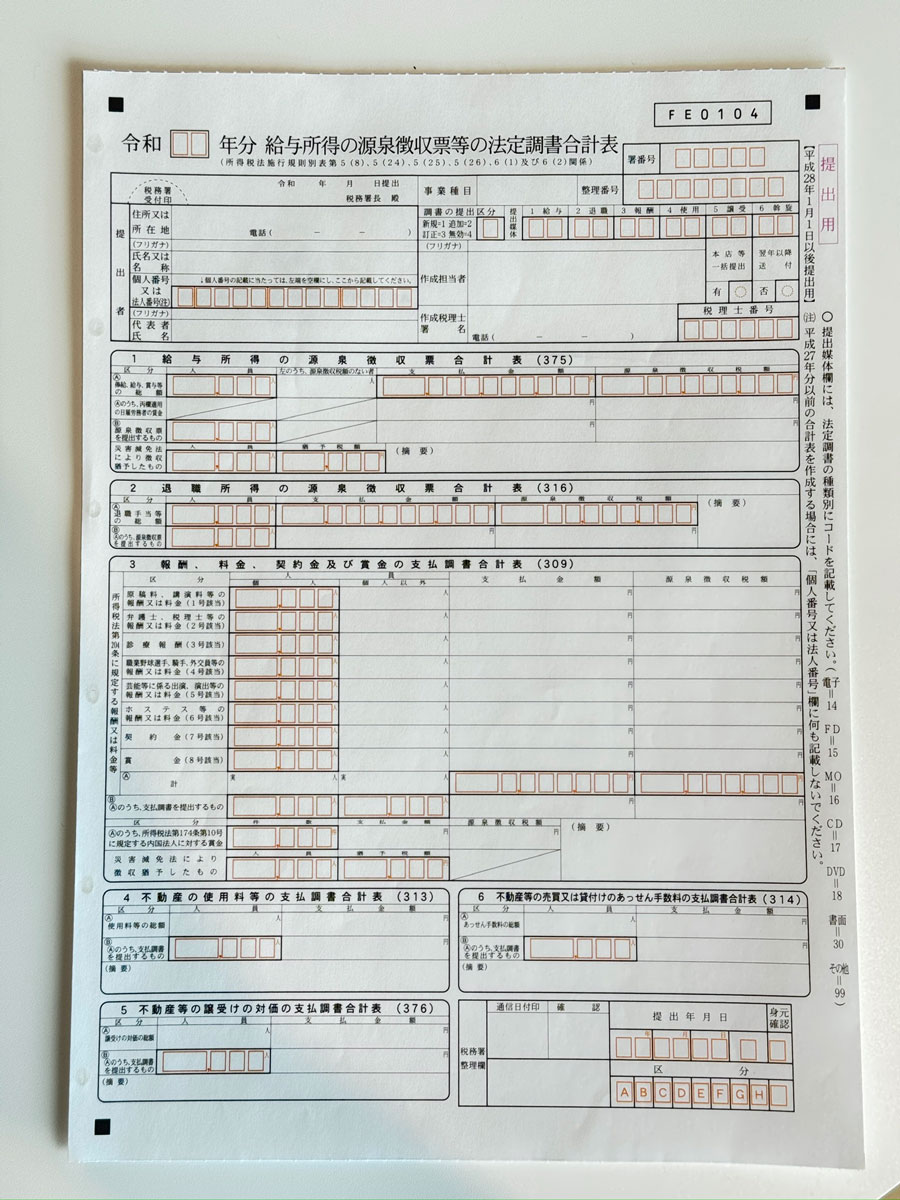 FE0104
令和 年分 給与所得の源泉徴収票等の法定調書合計表
(所得税法施行規則別表第5(8)、5(24)、5(25)、5(26)、6(1)及び6(2)関係)
署番号
税務署
受付印
令和 年 月 日提出
税務署長 殿
事業種目
整理番号
提出者
住所又は
所在地
電話( - - )
(フリガナ)
氏名又は
名称
個人番号
又は
法人番号(注)
↓個人番号の記載に当たっては、左端を空欄にし、ここから記載してください。
(フリガナ)
代表者
氏名
調書の提出区分
新規=1 追加=2
訂正=3 無効=4
提出媒体
1 給与
2 退職
3 報酬
4 使用
5 譲受
6 斡旋
(フリガナ)
作成担当者
本店等
一括提出
翌年以降
送付
有 否
作成税理士
署名
税理士番号
電話( - - )
1 給与所得の源泉徴収票合計表(375)
区分 人員 左のうち、源泉徴収税額のない者 支払金額 源泉徴収税額
Ⓐ俸給、給与、賞与等
の総額
Ⓐのうち、丙欄適用
の日雇労務者の賃金
Ⓑ源泉徴収票
を提出するもの
災害減免法
により徴収
猶予したもの
人員 猶予税額
(摘要)
2 退職所得の源泉徴収票合計表(316)
区分 人員 支払金額 源泉徴収税額
(摘要)
Ⓐ退職手当等
の総額
ⒷⒶのうち、源泉徴収票
を提出するもの
3 報酬、料金、契約金及び賞金の支払調書合計表(309)
区分 人員 支払金額 源泉徴収税額
個人 個人以外
所得税法第204条に規定する報酬又は料金等
原稿料、講演料等の
報酬又は料金(1号該当)
弁護士、税理士等の
報酬又は料金(2号該当)
診療報酬(3号該当)
職業野球選手、騎手、外交員等の
報酬又は料金(4号該当)
芸能等に係る出演、演出等の
報酬又は料金(5号該当)
ホステス等の
報酬又は料金(6号該当)
契約金(7号該当)
賞金(8号該当)
Ⓐ計
実 人 実 人
ⒷⒶのうち、支払調書を提出するもの
区分 件数 支払金額 源泉徴収税額
Ⓐのうち、所得税法第174条第10号
に規定する内国法人に対する賞金
(摘要)
災害減免法により
徴収猶予したもの
人員 猶予税額
4 不動産の使用料等の支払調書合計表(313)
区分 人員 支払金額
Ⓐ使用料等の総額
ⒷⒶのうち、支払調書
を提出するもの
(摘要)
6 不動産等の売買又は貸付けのあっせん手数料の支払調書合計表(314)
区分 人員 支払金額
Ⓐあっせん手数料の総額
ⒷⒶのうち、支払調書
を提出するもの
(摘要)
5 不動産等の譲受けの対価の支払調書合計表(376)
区分 人員 支払金額
Ⓐ譲受けの対価の総額
ⒷⒶのうち、支払調書
を提出するもの
(摘要)
税務署
整理欄
通信日付印 確認
提出年月日
身元
確認
年 月 日
区分
A B C D E F G H
提出用
【平成28年1月1日以後提出用】
○ 提出媒体欄には、法定調書の種類別にコードを記載してください。(電子=14 FD=15 MO=16 CD=17 DVD=18 書面=30 その他=99)
(注) 平成27年分以前の合計表を作成する場合には、「個人番号又は法人番号」欄に何も記載しないでください。